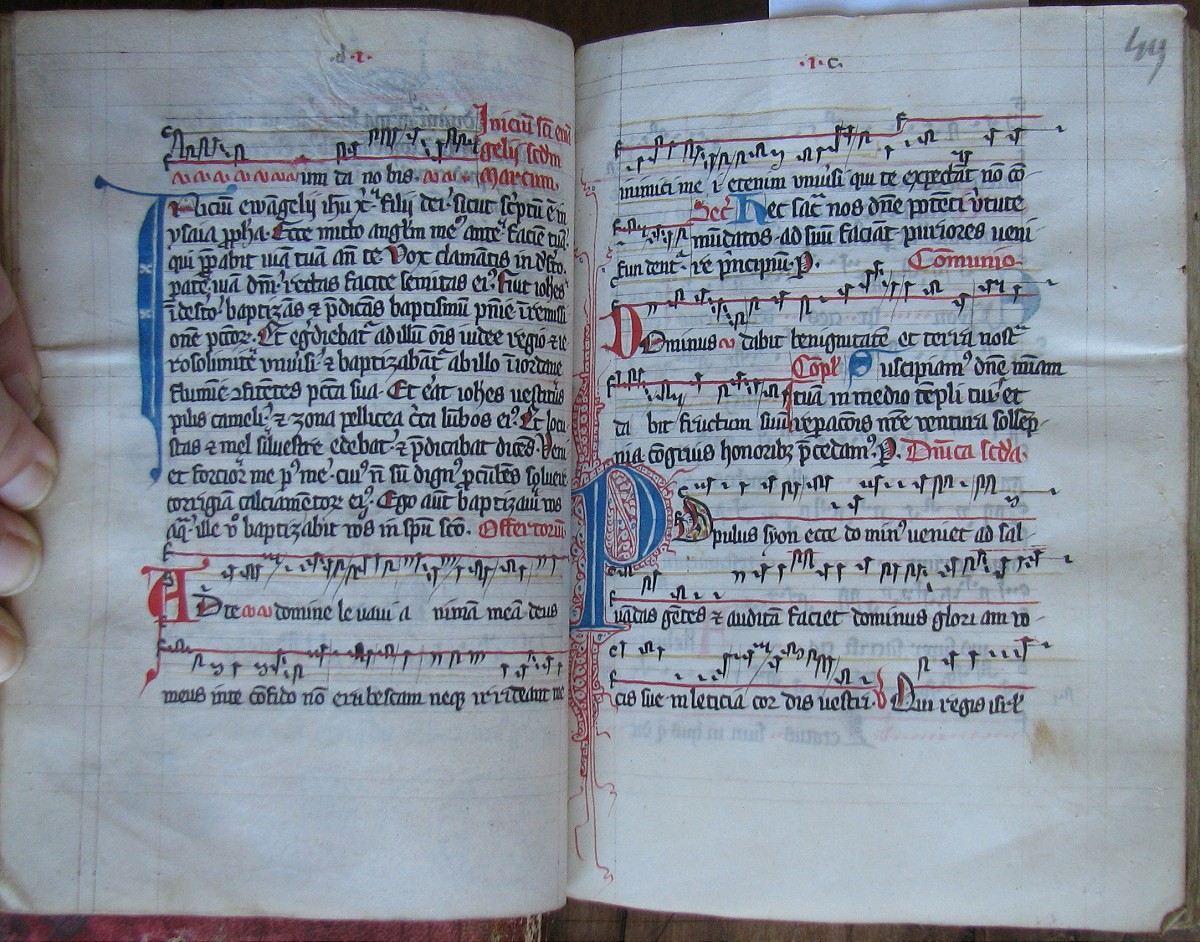 .b.I.
Iniciu sci ewa
gelij scdm
Marcum.
um da no bis.
Niciu ewagelij ihu xi filij dei sicut scriptu e in
ysaia ppha. Ecce mitto anglm meu ante facie tua
qui pparabit uia tua an te Vox clamatis in dsto.
parate uia dni rectas facite semitas ei. Fuit iohes
i desto baptizas et pdicas baptismu pnie i remissi
one pctor. Et egdiebat ad illu ois iudee regio et ie
rosolimite vniusi et baptizabant ab illo i iordane
flumie ofitetes pcta sua. Et erat iohes uestitus
pilis cameli et zona pellicea circa lubos ei. Et locu
stas et mel siluestre edebat et pdicabat dices. Veni
et forcior me p me cui n su dign pcubes soluere
corrigia calciamentor ei. Ego aut baptizaui uos
aq ille vo baptizabit uos in spu sco. Offertoriu
AD te domine le uaui a nimam mea deus
meus inte cofido no erubescam neq irrideant me
.I.c.
49
inimici me i etenim vniusi qui te expectat no co
Sec Hec sac nos dne potenti virtute
mudatos ad suu faciat puriores ueni
fun dent. re pncipiu. P. Comunio
DOminus dabit benignitate et terra nost
Copl Suscipiam dne miam
tua in medio templi tui et
da bit fructum suu repacois nre ventura sollep
nia cogruis honoribz pcedam. P. Dnica scda.
POpulus syon ecce do min ueniet ad sal
uadas getes et audita faciet dominus glori am uo
cis sue in leticia cor dis uestri. Qui regis isrl